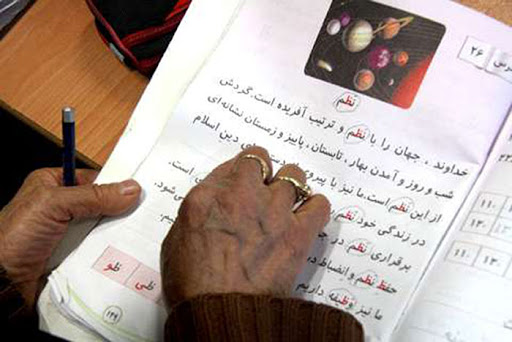 نظم
خداوند، جهان را با نظم و ترتیب آفریده است. گردش
شب و روز و آمدن بهار، تابستان، پاییز و زمستان نشانه‌ای
از این نظم است. ما نیز با پیروی دین اسلام
در زندگی خود نظم است.
برقراری نظم در می‌شود.
حفظ نظم و انضباط
ما نیز وظیفه داریم
ظی ظو
۱۴۹
درس ۲۶
۱۱۰
۱۳۰
۱۱۰ ۱۳۰